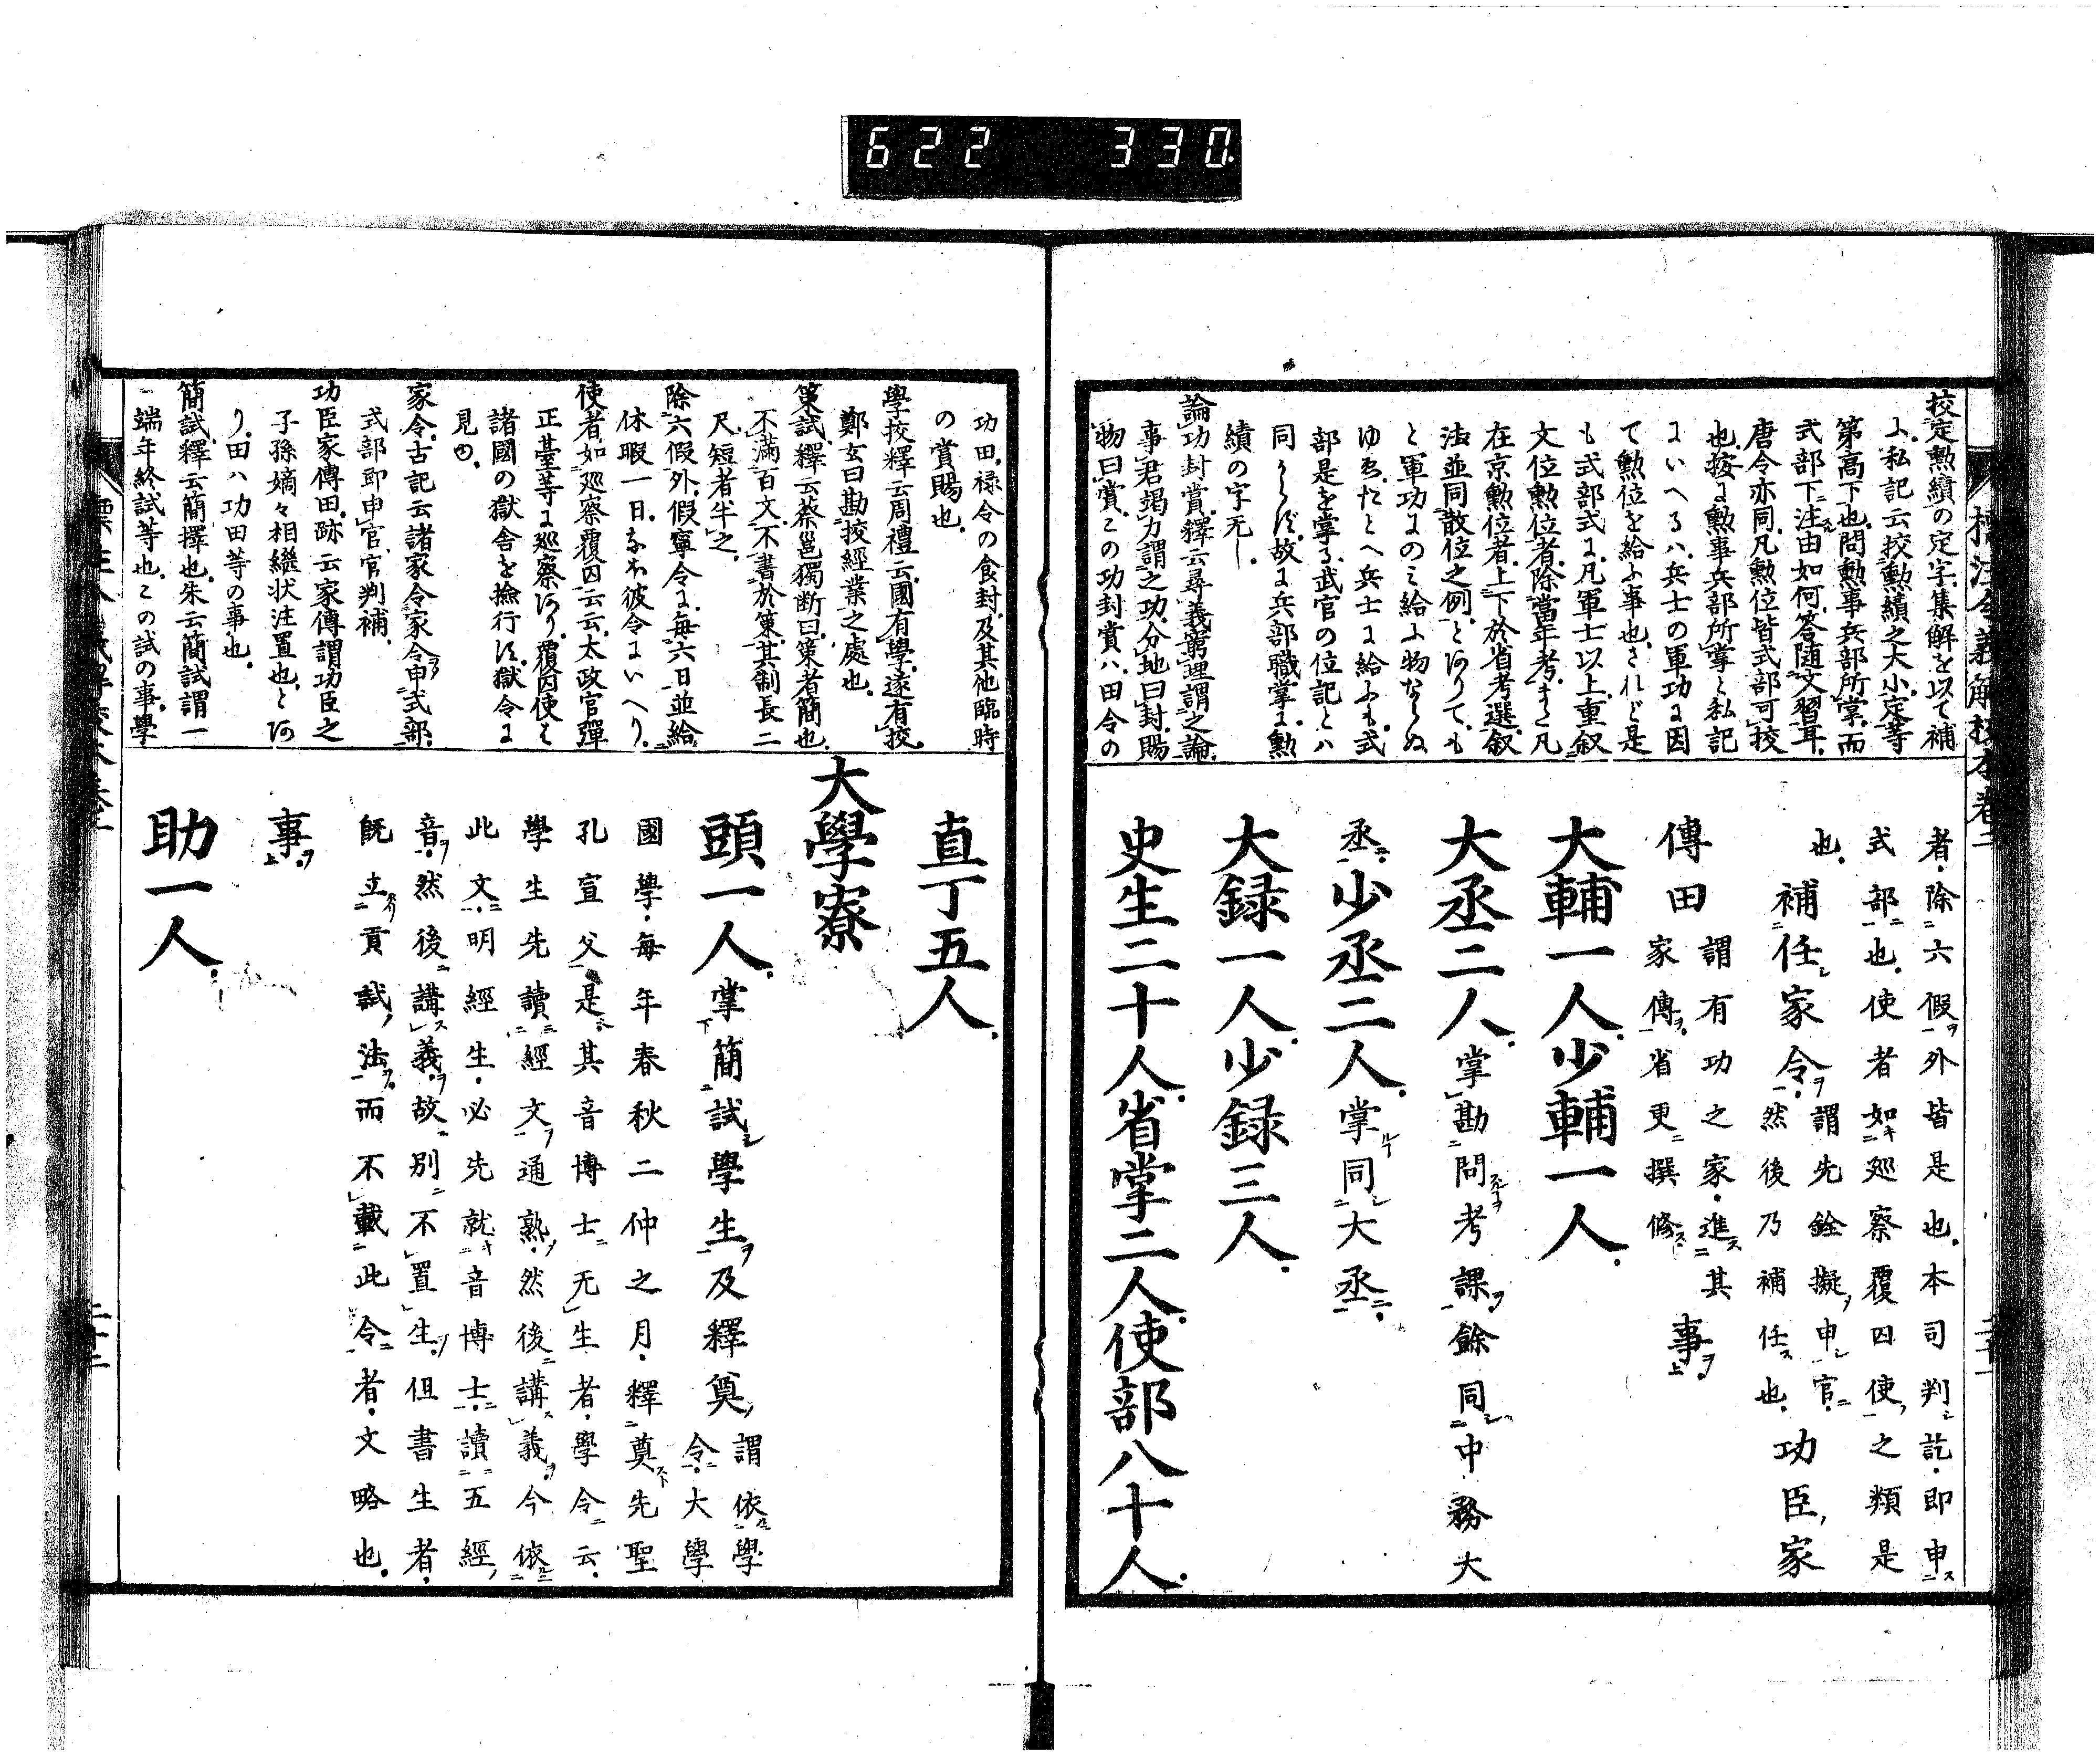 622 330
標注令義解校本卷二
校定勲績の定字、集解を以て補
ふ、私記云、校勲績之大小、定等
第高下也、問、勲事兵部所掌、而
式部下注由如何、答、隨文習耳、
唐令亦同、凡勲位皆式部可校
也、按に勲事兵部所掌と私記
にいへるハ、兵士の軍功に因
て勲位を給ふ事也、されど是
も式部式に、凡軍士以上、重叙
文位勲位者、除當年考、また凡
在京勲位者、上下於省考選、叙
法並同散位之例、とありても
と軍功にのミ給ふ物ならぬ
ゆゑ、たとへ兵士に給ふも、式
部是を掌る、武官の位記とハ
同からず、故に兵部職掌に、勲
績の字无し
論功封賞、釋云、尋義窮理謂之論、
事君竭力謂之功、分地曰封、賜
物曰賞、この功封賞ハ、田令の
者、除六假外皆是也、本司判訖、即申
式部也、使者如巡察覆囚使之類是
也、補任家令、謂先銓擬申官、
然後乃補任也、功臣家
傳田謂有功之家、進其
家傳、省更撰修、事、
大輔一人、少輔一人、
大丞二人、掌勘問考課、餘同中務大
丞、少丞二人、掌同大丞、
大録一人、少録三人、
史生二十人、省掌二人、使部八十人、
功田、禄令の食封、及其他臨時
の賞賜也、
學校、釋云、周禮云、國有學、遂有校、
鄭玄曰、勘校經業之處也、
策試、釋云、蔡邕獨断曰、策者簡也、
不滿百文、不書於策、其制長二
尺、短者半之、
除六假外、假寧令に、毎六日並給
休暇一日、なほ彼令にいへり、
使者、如巡察覆囚云云、太政官彈
正臺等に巡察あり、覆囚使も
諸國の獄舍を撿行す、獄令に
見ゆ、
家令、古記云、諸家令家令申式部、
式部即申官、官判補、
功臣家傳田、跡云、家傳謂功臣之
子孫嫡々相繼状注置也、とあ
り、田ハ功田等の事也、
簡試、釋云、簡擇也、朱云、簡試謂一
端年終試等也、この試の事、學
直丁五人、
大學寮
頭一人、掌簡試學生、及釋奠、謂依學
令、大學
國學、毎年春秋二仲之月、釋奠先聖
孔宣父、是其音博士无生者、學令云、
學生先讀經文通熟、然後講義、今依
此文、明經生、必先就音博士、讀五經
音、然後講義、故別不置生、但書生者、
既立貢試法、而不載此令者、文略也、
事、
助一人、